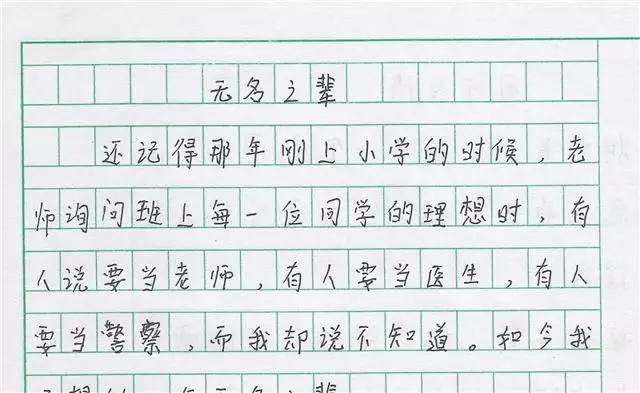 无名之辈
还记得那年刚上小学的时候，老
师询问班上每一位同学的理想时，有
人说要当老师，有人要当医生，有人
要当警察，而我却说不知道。如今我
无名之辈